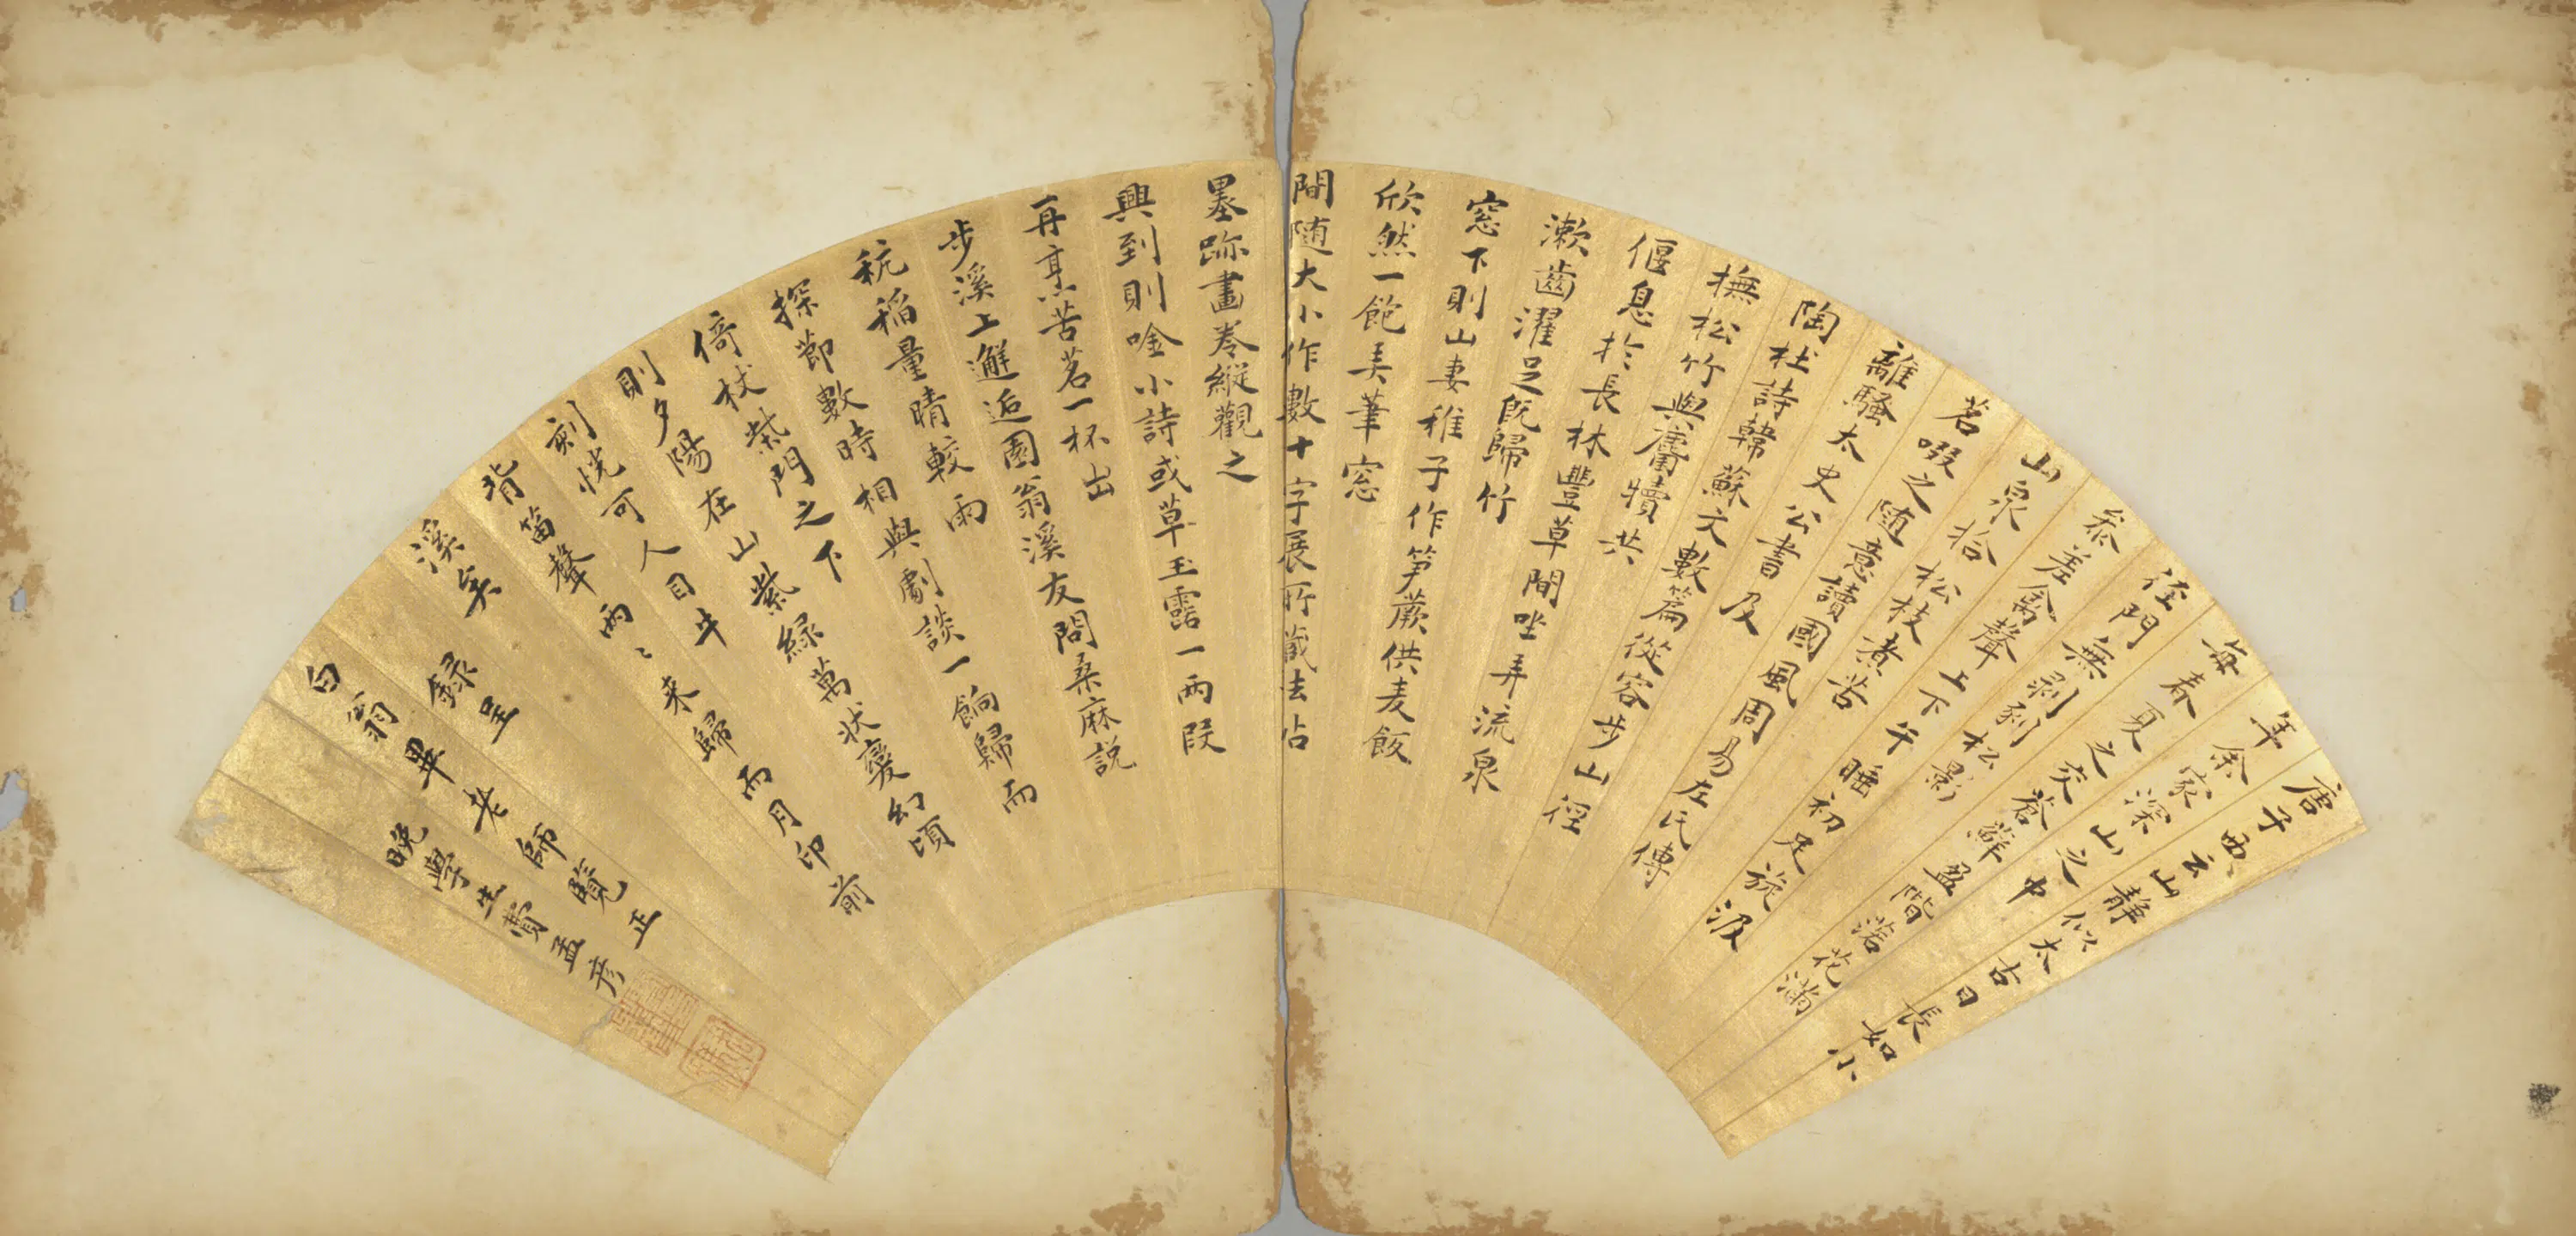 唐子西云山静似太古日長如小
年余家深山之中
每春夏之交蒼蘚盈階落花滿
徑門無剥啄松影
参差禽聲上下午睡初足旋汲
山泉拾松枝煮苦
茗啜之随意讀國風周易左氏傳
離騷太史公書及
陶杜詩韓蘇文數篇從容步山徑
撫松竹與麛犢共
偃息扵長林豐草間坐弄流泉
漱齒濯足既歸竹
窓下則山妻稚子作笋蕨供麦飯
欣然一飽弄筆窓
間随大小作數十字展所藏法帖
墨跡畫卷縱觀之
興到則唫小詩或草玉露一兩段
再烹苦茗一杯出
步溪上邂逅園翁溪友問桑麻説
秔稲量晴較雨
探節數時相與劇談一餉歸而
倚杖柴門之下
則夕陽在山紫緑萬状變幻頃
刻恍可人目牛
背笛聲兩〻来歸而月印前
溪矣
録呈
白翁畢老師覽正
晚學生費孟彦